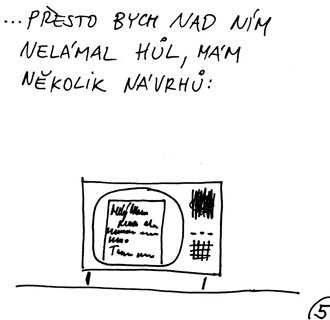 ...PŘESTO BYCH NAD NÍM
NELÁMAL HŮL, MÁM
NĚKOLIK NÁVRHŮ:
5